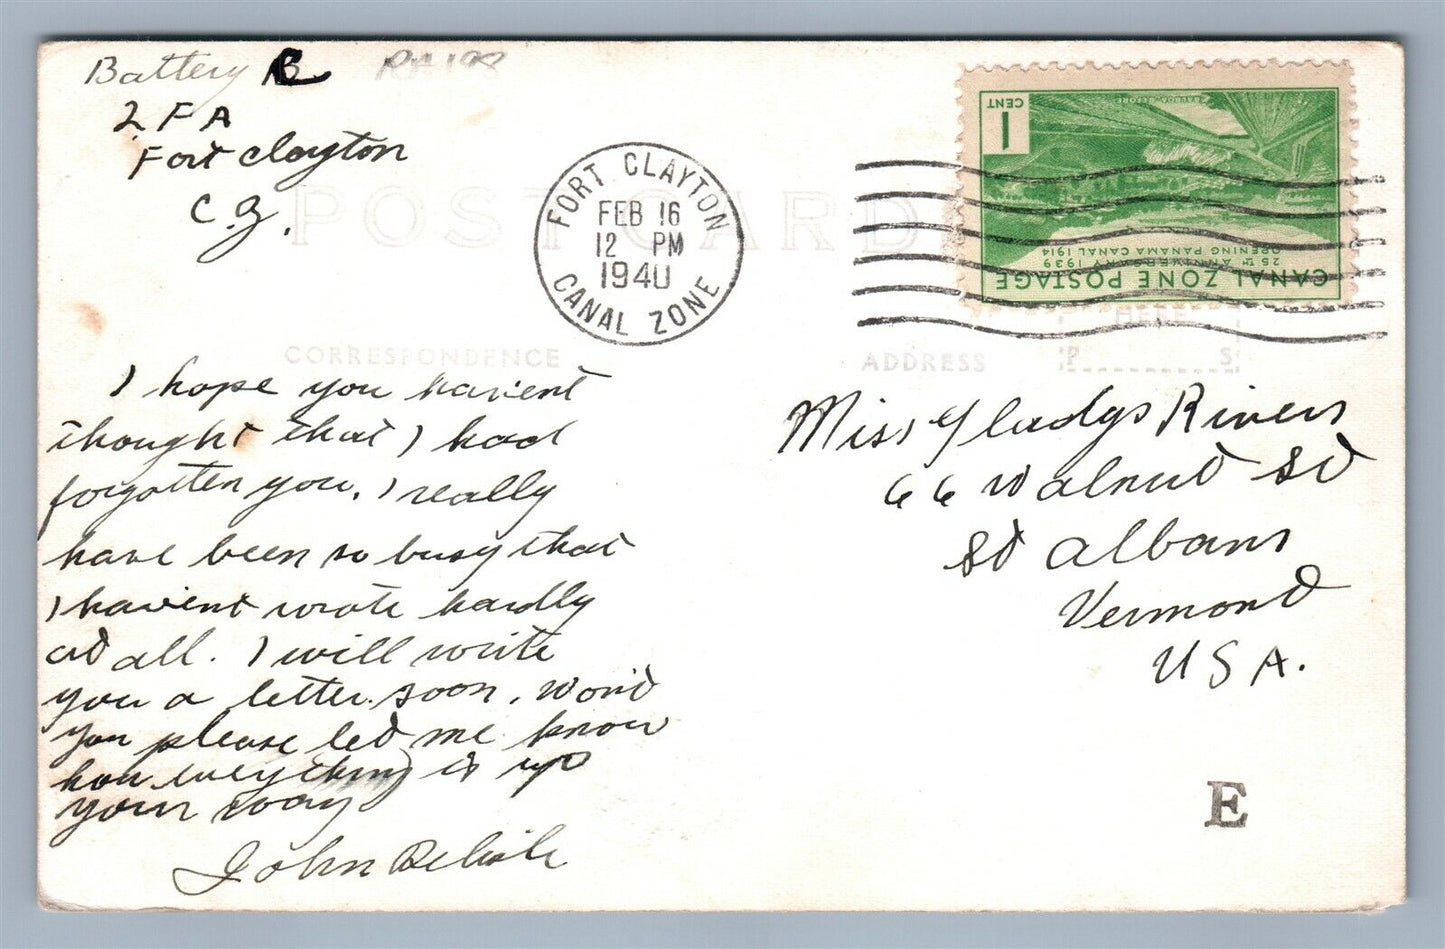 Battery C
RA198
2 F A
Fort Clayton
C.Z.
POST CARD
FORT CLAYTON
FEB 16
12 PM
1940
CANAL ZONE
1
CENT
GAMBOA-BEFORE
25TH ANNIVERSARY 1939
OPENING PANAMA CANAL 1914
CANAL ZONE POSTAGE
HERE
P S
CORRESPONDENCE
ADDRESS
I hope you havent
thought that I had
forgotten you. I really
have been so busy that
I havent wrote hardly
at all. I will write
you a letter soon. Wont
you please let me know
how everything is up
your way
John Belisle
Miss Gladys Rivers
66 Walnut St
St Albans
Vermont
U S A.
E